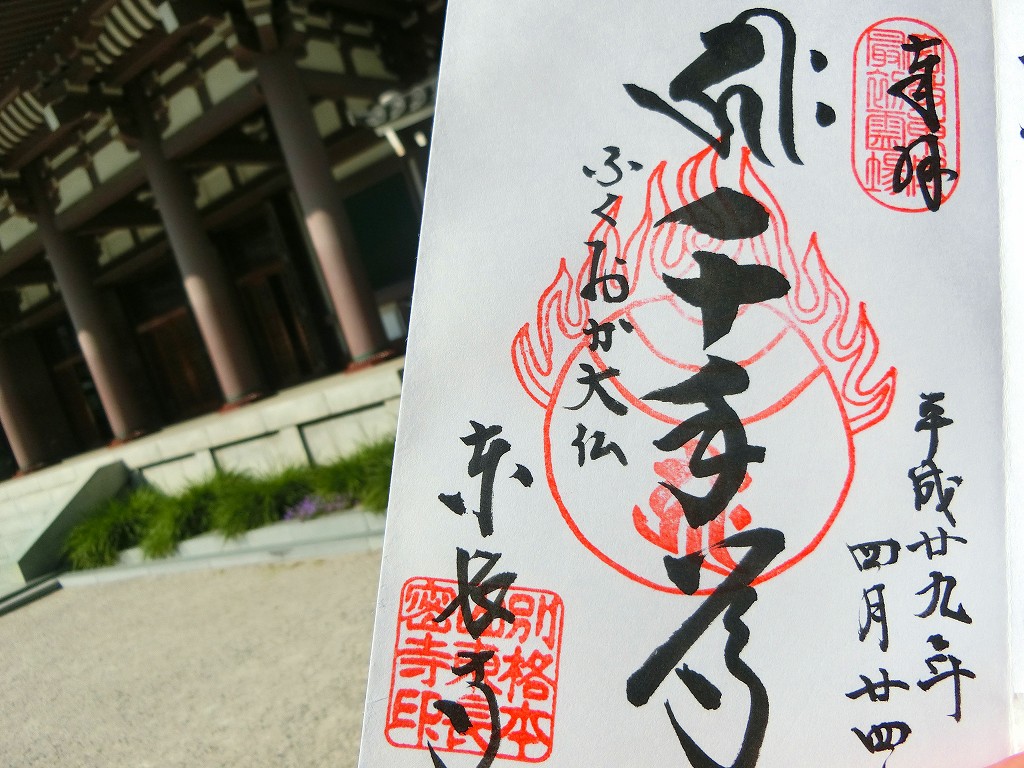 奉拝
最初霊場
平成廿九年
四月廿四
ह्रीः
千手尊
ふくおか大仏
東長寺
別格本
山東長
密寺印